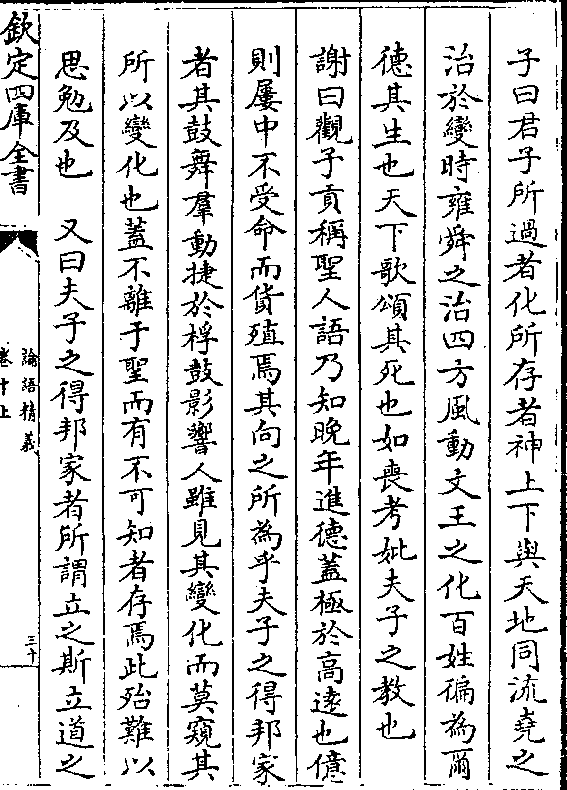 子曰君子所過者化所存者神上下與天地同流堯之
治於變時雍舜之治四方風動文王之化百姓徧為爾
德其生也天下歌頌其死也如喪考妣夫子之教也
謝曰觀子貢稱聖人語乃知晚年進德蓋極於高遠也億
則屢中不受命而貨殖焉其向之所為乎夫子之得邦家
者其鼓舞羣動捷於桴鼓影響人雖見其變化而莫窺其
所以變化也蓋不離于聖而有不可知者存焉此殆難以
思勉及也 又曰夫子之得邦家者所謂立之斯立道之
欽定四庫全書
論語精義
卷十上
三十